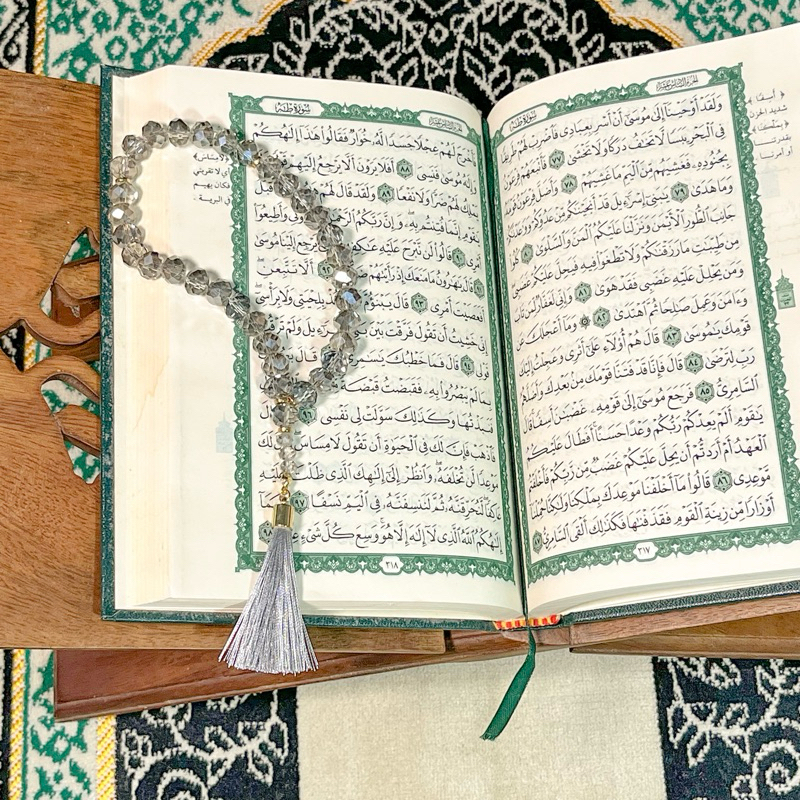 الجزء السادس عشر
سورة طه
وَلَقَدْ أَوْحَيْنَا إِلَىٰ مُوسَىٰ أَنْ أَسْرِ بِعِبَادِي فَاضْرِبْ لَهُمْ طَرِيقًا
فِي الْبَحْرِ يَبَسًا لَّا تَخَافُ دَرَكًا وَلَا تَخْشَىٰ ٧٧ فَأَتْبَعَهُمْ فِرْعَوْنُ
بِجُنُودِهِ فَغَشِيَهُم مِّنَ الْيَمِّ مَا غَشِيَهُمْ ٧٨ وَأَضَلَّ فِرْعَوْنُ قَوْمَهُ
وَمَا هَدَىٰ ٧٩ يَٰبَنِي إِسْرَٰٓءِيلَ قَدْ أَنجَيْنَٰكُم مِّنْ عَدُوِّكُمْ وَوَٰعَدْنَٰكُمْ
جَانِبَ الطُّورِ الْأَيْمَنَ وَنَزَّلْنَا عَلَيْكُمُ الْمَنَّ وَالسَّلْوَىٰ ٨٠ كُلُوا
مِن طَيِّبَٰتِ مَا رَزَقْنَٰكُمْ وَلَا تَطْغَوْا فِيهِ فَيَحِلَّ عَلَيْكُمْ غَضَبِي
وَمَن يَحْلِلْ عَلَيْهِ غَضَبِي فَقَدْ هَوَىٰ ٨١ وَإِنِّي لَغَفَّارٌ لِّمَن تَابَ
وَءَامَنَ وَعَمِلَ صَٰلِحًا ثُمَّ اهْتَدَىٰ ٨٢ ۞ وَمَا أَعْجَلَكَ عَن
قَوْمِكَ يَٰمُوسَىٰ ٨٣ قَالَ هُمْ أُولَاءِ عَلَىٰ أَثَرِي وَعَجِلْتُ إِلَيْكَ
رَبِّ لِتَرْضَىٰ ٨٤ قَالَ فَإِنَّا قَدْ فَتَنَّا قَوْمَكَ مِن بَعْدِكَ وَأَضَلَّهُمُ
السَّامِرِيُّ ٨٥ فَرَجَعَ مُوسَىٰ إِلَىٰ قَوْمِهِ غَضْبَٰنَ أَسِفًا قَالَ
يَٰقَوْمِ أَلَمْ يَعِدْكُمْ رَبُّكُمْ وَعْدًا حَسَنًا أَفَطَالَ عَلَيْكُمُ
الْعَهْدُ أَمْ أَرَدتُّمْ أَن يَحِلَّ عَلَيْكُمْ غَضَبٌ مِّن رَّبِّكُمْ فَأَخْلَفْتُم
مَّوْعِدِي ٨٦ قَالُوا مَا أَخْلَفْنَا مَوْعِدَكَ بِمَلْكِنَا وَلَٰكِنَّا حُمِّلْنَا
أَوْزَارًا مِّن زِينَةِ الْقَوْمِ فَقَذَفْنَٰهَا فَكَذَٰلِكَ أَلْقَى السَّامِرِيُّ ٨٧
٣١٧
﴿ أَسِفًا ﴾
شديد الحزن
﴿ بِمَلْكِنَا ﴾
بقدرتنا
أو أمرنا
الجزء السادس عشر
سورة طه
فَأَخْرَجَ لَهُمْ عِجْلًا جَسَدًا لَّهُ خُوَارٌ فَقَالُوا هَٰذَا إِلَٰهُكُمْ
وَإِلَٰهُ مُوسَىٰ فَنَسِيَ ٨٨ أَفَلَا يَرَوْنَ أَلَّا يَرْجِعُ إِلَيْهِمْ
يَمْلِكُ لَهُمْ ضَرًّا وَلَا نَفْعًا ٨٩ وَلَقَدْ قَالَ لَهُمْ قَبْلُ
يَٰقَوْمِ إِنَّمَا فُتِنتُم بِهِ وَإِنَّ رَبَّكُمُ الرَّحْمَٰنُ وَأَطِيعُوا
أَمْرِي ٩٠ قَالُوا لَن نَّبْرَحَ عَلَيْهِ عَٰكِفِينَ يَرْجِعَ إِلَيْنَا مُوسَىٰ
قَالَ يَٰهَٰرُونُ مَا مَنَعَكَ إِذْ رَأَيْتَهُمْ ٩٢ أَلَّا تَتَّبِعَنِ
أَفَعَصَيْتَ أَمْرِي ٩٣ قَالَ يَبْنَؤُمَّ بِلِحْيَتِي وَلَا بِرَأْسِي
إِنِّي خَشِيتُ أَن تَقُولَ فَرَّقْتَ بَيْنَ وَلَمْ تَرْقُبْ
قَوْلِي ٩٤ قَالَ فَمَا خَطْبُكَ يَٰسَٰمِرِيُّ قَالَ
بِمَا لَمْ يَبْصُرُوا بِهِ فَقَبَضْتُ قَبْضَةً
فَنَبَذْتُهَا وَكَذَٰلِكَ سَوَّلَتْ لِي نَفْسِي ٩٦
فَاذْهَبْ فَإِنَّ لَكَ فِي الْحَيَوٰةِ أَن تَقُولَ لَا مِسَاسَ لَكَ
مَوْعِدًا لَّن تُخْلَفَهُ وَانظُرْ إِلَىٰ إِلَٰهِكَ الَّذِي ظَلْتَ عَلَيْهِ
عَاكِفًا لَّنُحَرِّقَنَّهُ ثُمَّ لَنَنسِفَنَّهُ فِي الْيَمِّ نَسْفًا ٩٧
إِلَٰهُكُمُ اللَّهُ الَّذِي لَا إِلَٰهَ إِلَّا هُوَ وَسِعَ كُلَّ شَيْءٍ
٣١٨
لا مساس ﴾
أي لا تقربني
فكان يهيم
في البرية